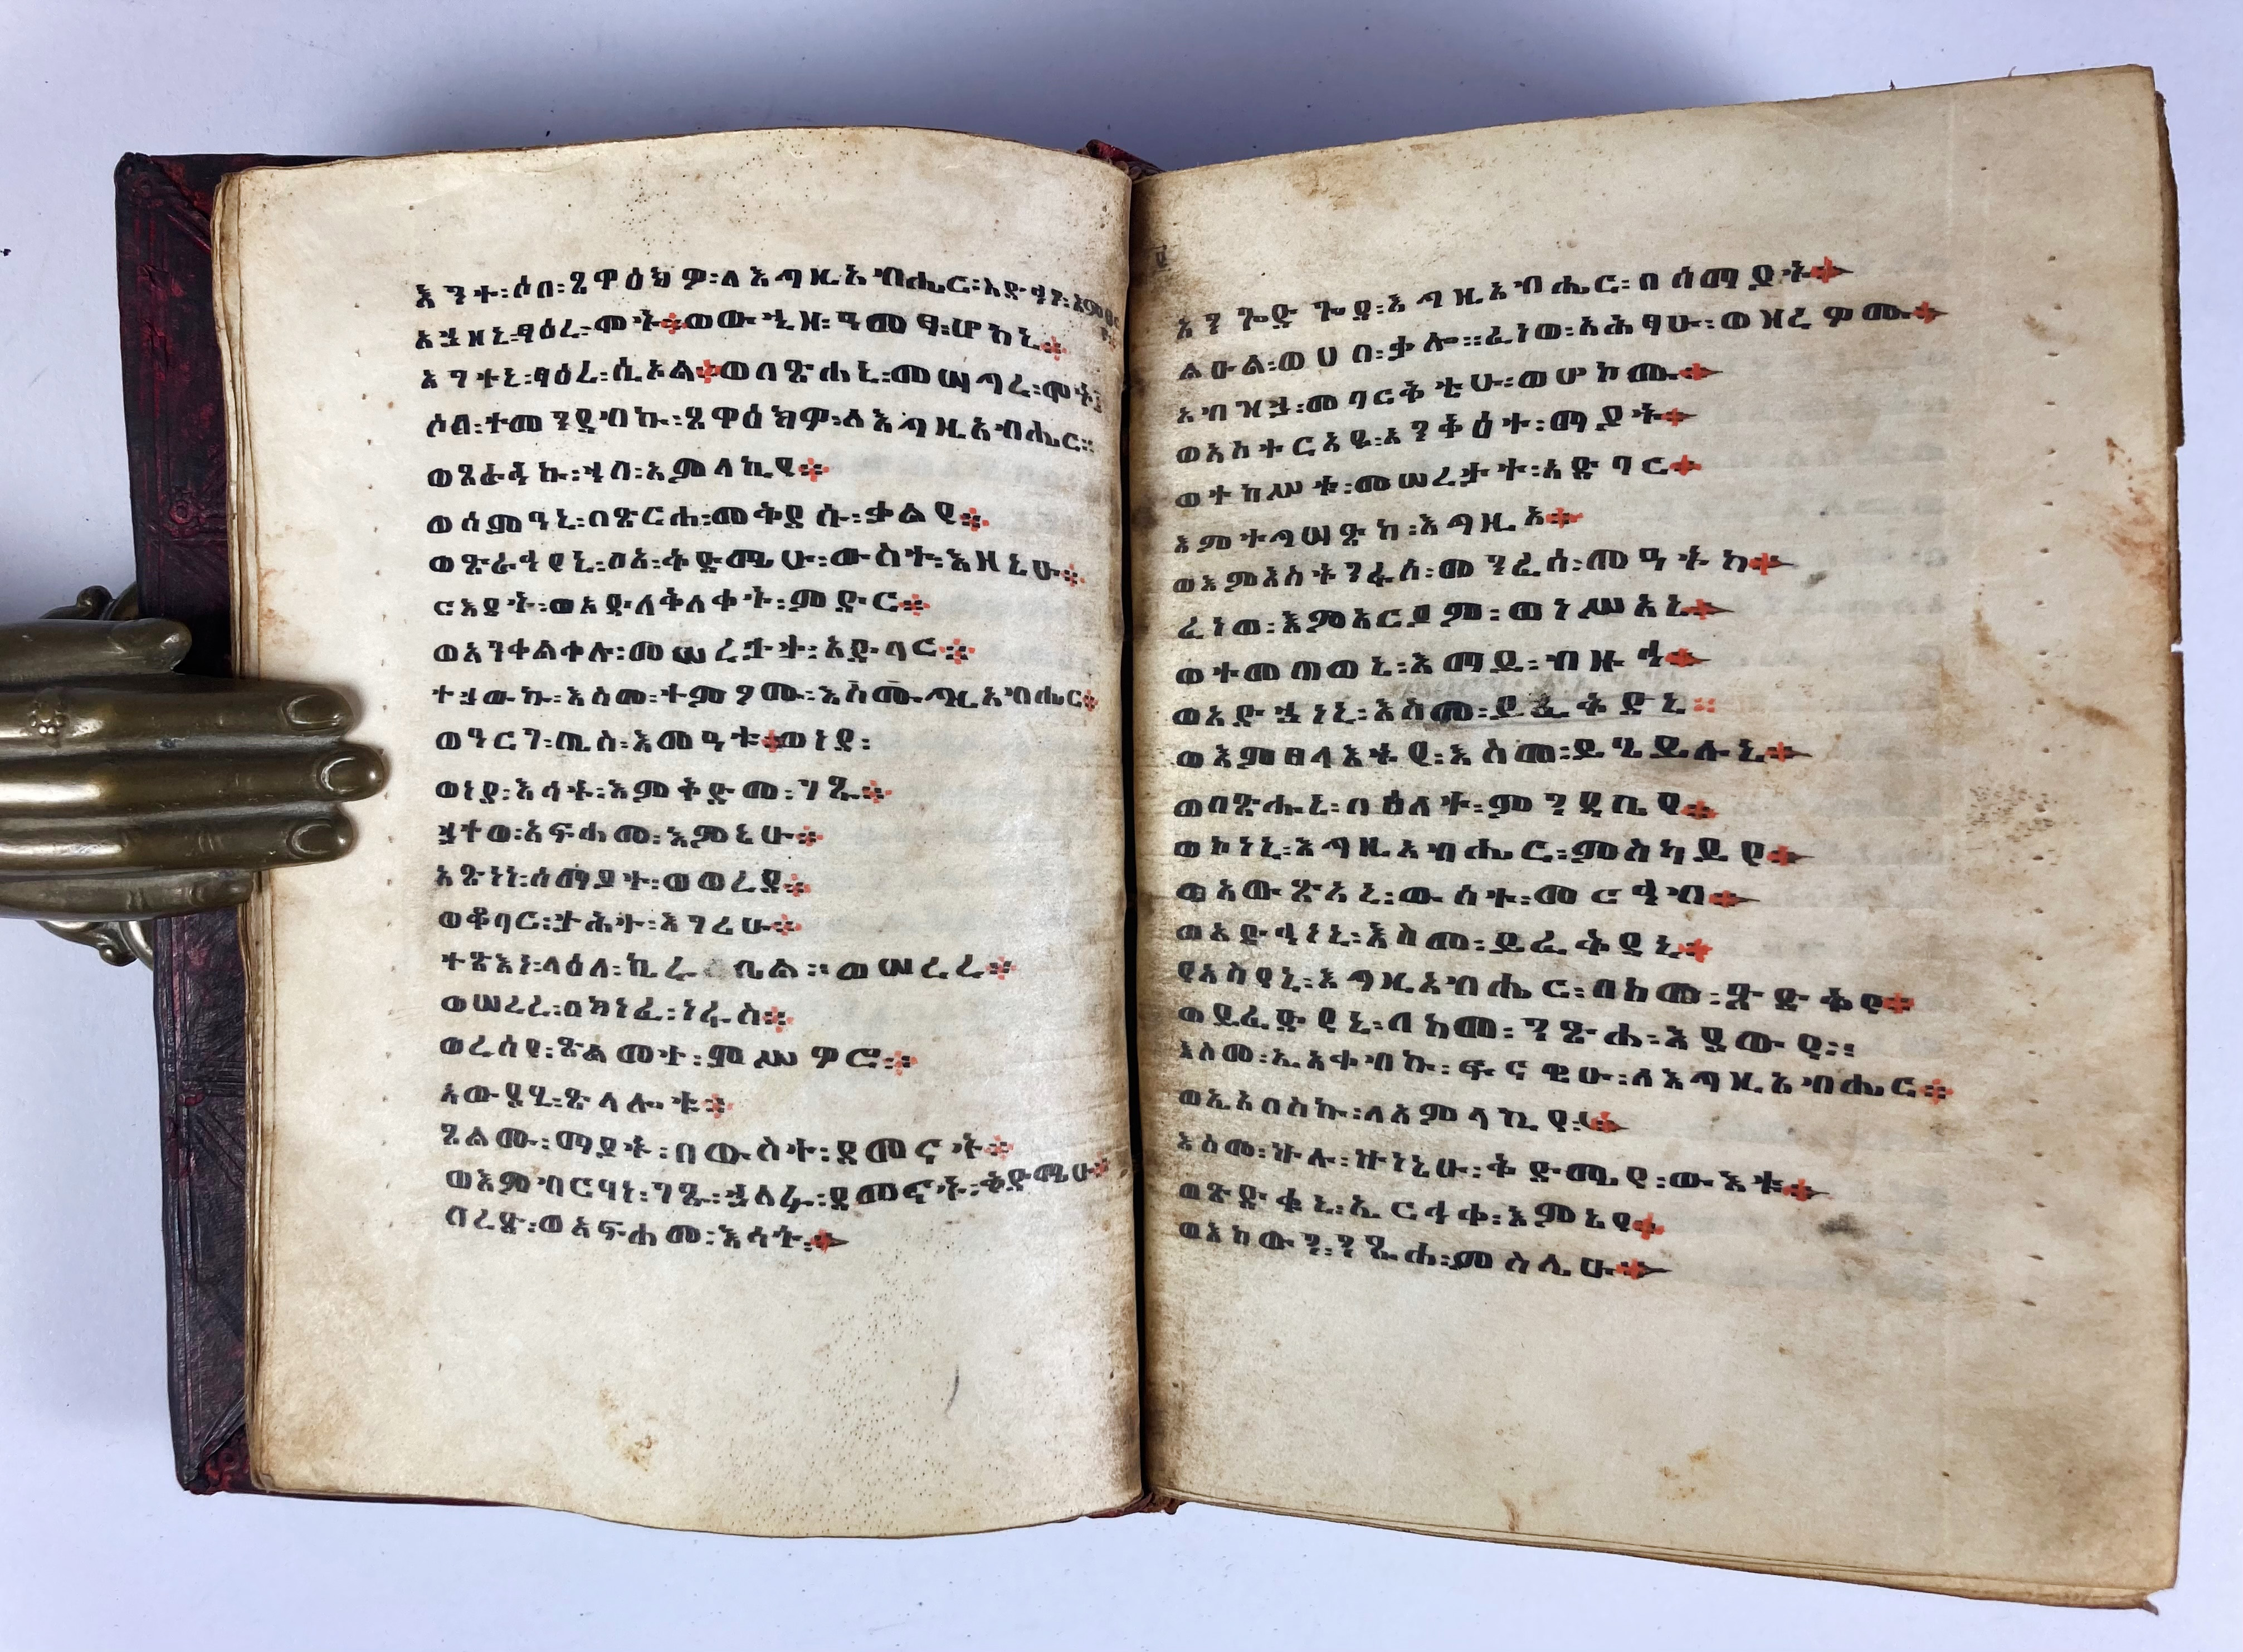 እንተ፡ሶበ፡ጸዋዕክዎ፡ለእግዚአብሔር፡እድኅነ፡
አኀዘኒ፡ፃዕረ፡ሞት፨ወውኂዘ፡ዓመፃ፡ሆከኒ፨
እግተኒ፡ፃዕረ፡ሲኦል፨ወበጽሐኒ፡መሣግረ፡ሞት፨
ሶበ፡ተመንደብኩ፡ጸዋዕክዎ፡ለእግዚአብሔር።
ወጸራኅኩ፡ኀበ፡አምላኪየ፨
ወሰምዓኒ፡በጽርሐ፡መቅደሱ፡ቃልየ፨
ወጽራኅየኒ፡በአ፡ቅድሜሁ፡ውስተ፡እዘኒሁ፨
ርእደት፡ወአድለቅለቀት፡ምድር፨
ወአንቀልቀሉ፡መሠረታተ፡አድባር፨
ተኀውኩ፡እስመ፡ተምዖሙ፡እግዚአብሔር፨
ወዓርገ፡ጢስ፡እመዓቱ፨ወነደ፡
ወነደ፡እሳት፡እምቅድመ፡ገጹ፨
ኀተወ፡አፍሐመ፡እምኔሁ፨
አጽነነ፡ሰማያተ፡ወወረደ፨
ወቆባር፡ታሕተ፡እገሪሁ፨
ተጽእነ፡ላዕለ፡ኪሩቤል፡ወሠረረ፨
ወሠረረ፡በክነፈ፡ነፋስ፨
ወረሰየ፡ጽልመተ፡ምሥዋሮ፨
አውያሂ፡ጽላሎቱ፨
ጸልሙ፡ማያት፡በውስተ፡ደመናት፨
ወእምብርሃነ፡ገጹ፡ኀለፋ፡ደመናት፡ቅድሜሁ፨
በረድ፡ወአፍሐመ፡እሳት፨
አንጐድጐደ፡እግዚአብሔር፡በሰማያት፨
ልዑል፡ወሀበ፡ቃሎ።ፈነወ፡አሕፃሁ፡ወዘረዎሙ፨
አብዝኀ፡መባርቅቲሁ፡ወሆኮሙ፨
ወአስተርአዩ፡አንቅዕተ፡ማያት፨
ወተከሥቱ፡መሠረታተ፡አድባር፨
እምተግሣጽከ፡እግዚኦ፨
ወእምእስትንፋሰ፡መንፈሰ፡መዓትከ፨
ፈነወ፡እምአርያም፡ወነሥአኒ፨
ወተመጠወኒ፡እማይ፡ብዙኅ፨
ወአድኀነኒ፡እስመ፡ይፈቅደኒ፨
ወእምፀላእትየ፡እስመ፡ይኄይሉኒ፨
ወበጽሑኒ፡በዕለተ፡ምንዳቤየ፨
ወኮነኒ፡እግዚአብሔር፡ምስካይየ፨
ወአውጽአኒ፡ውስተ፡መርኅብ፨
ወአድኀነኒ፡እስመ፡ይፈቅደኒ፨
የአስየኒ፡እግዚአብሔር፡በከመ፡ጽድቅየ፨
ወይፈድየኒ፡በከመ፡ንጽሐ፡እደውየ።
እስመ፡ኢአቀብኩ፡ፍናዊሁ፡ለእግዚአብሔር፨
ወኢአበስኩ፡ለአምላኪየ፨
እስመ፡ኵሉ፡ኵነኔሁ፡ቅድሜየ፡ውእቱ፨
ወጽድቁኒ፡ኢርኅቀ፡እምኔየ፨
ወእከውን፡ንጹሐ፡ምስሌሁ፨